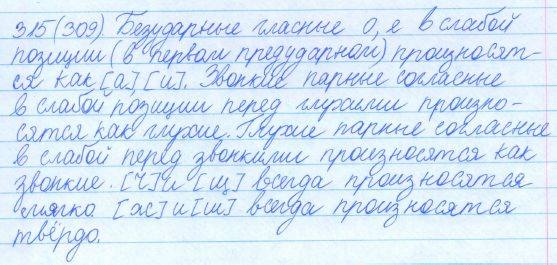 315(309). Безударные гласные о, е в слабой
позиции (в первом предударном) произносят-
ся как [а], [и]. Звонкие парные согласные
в слабой позиции перед глухими произно-
сятся как глухие. Глухие парные согласные
в слабой перед звонкими произносятся как
звонкие. [Ч] и [щ] всегда произносятся
мягко [ж] и [ш] всегда произносятся
твёрдо.